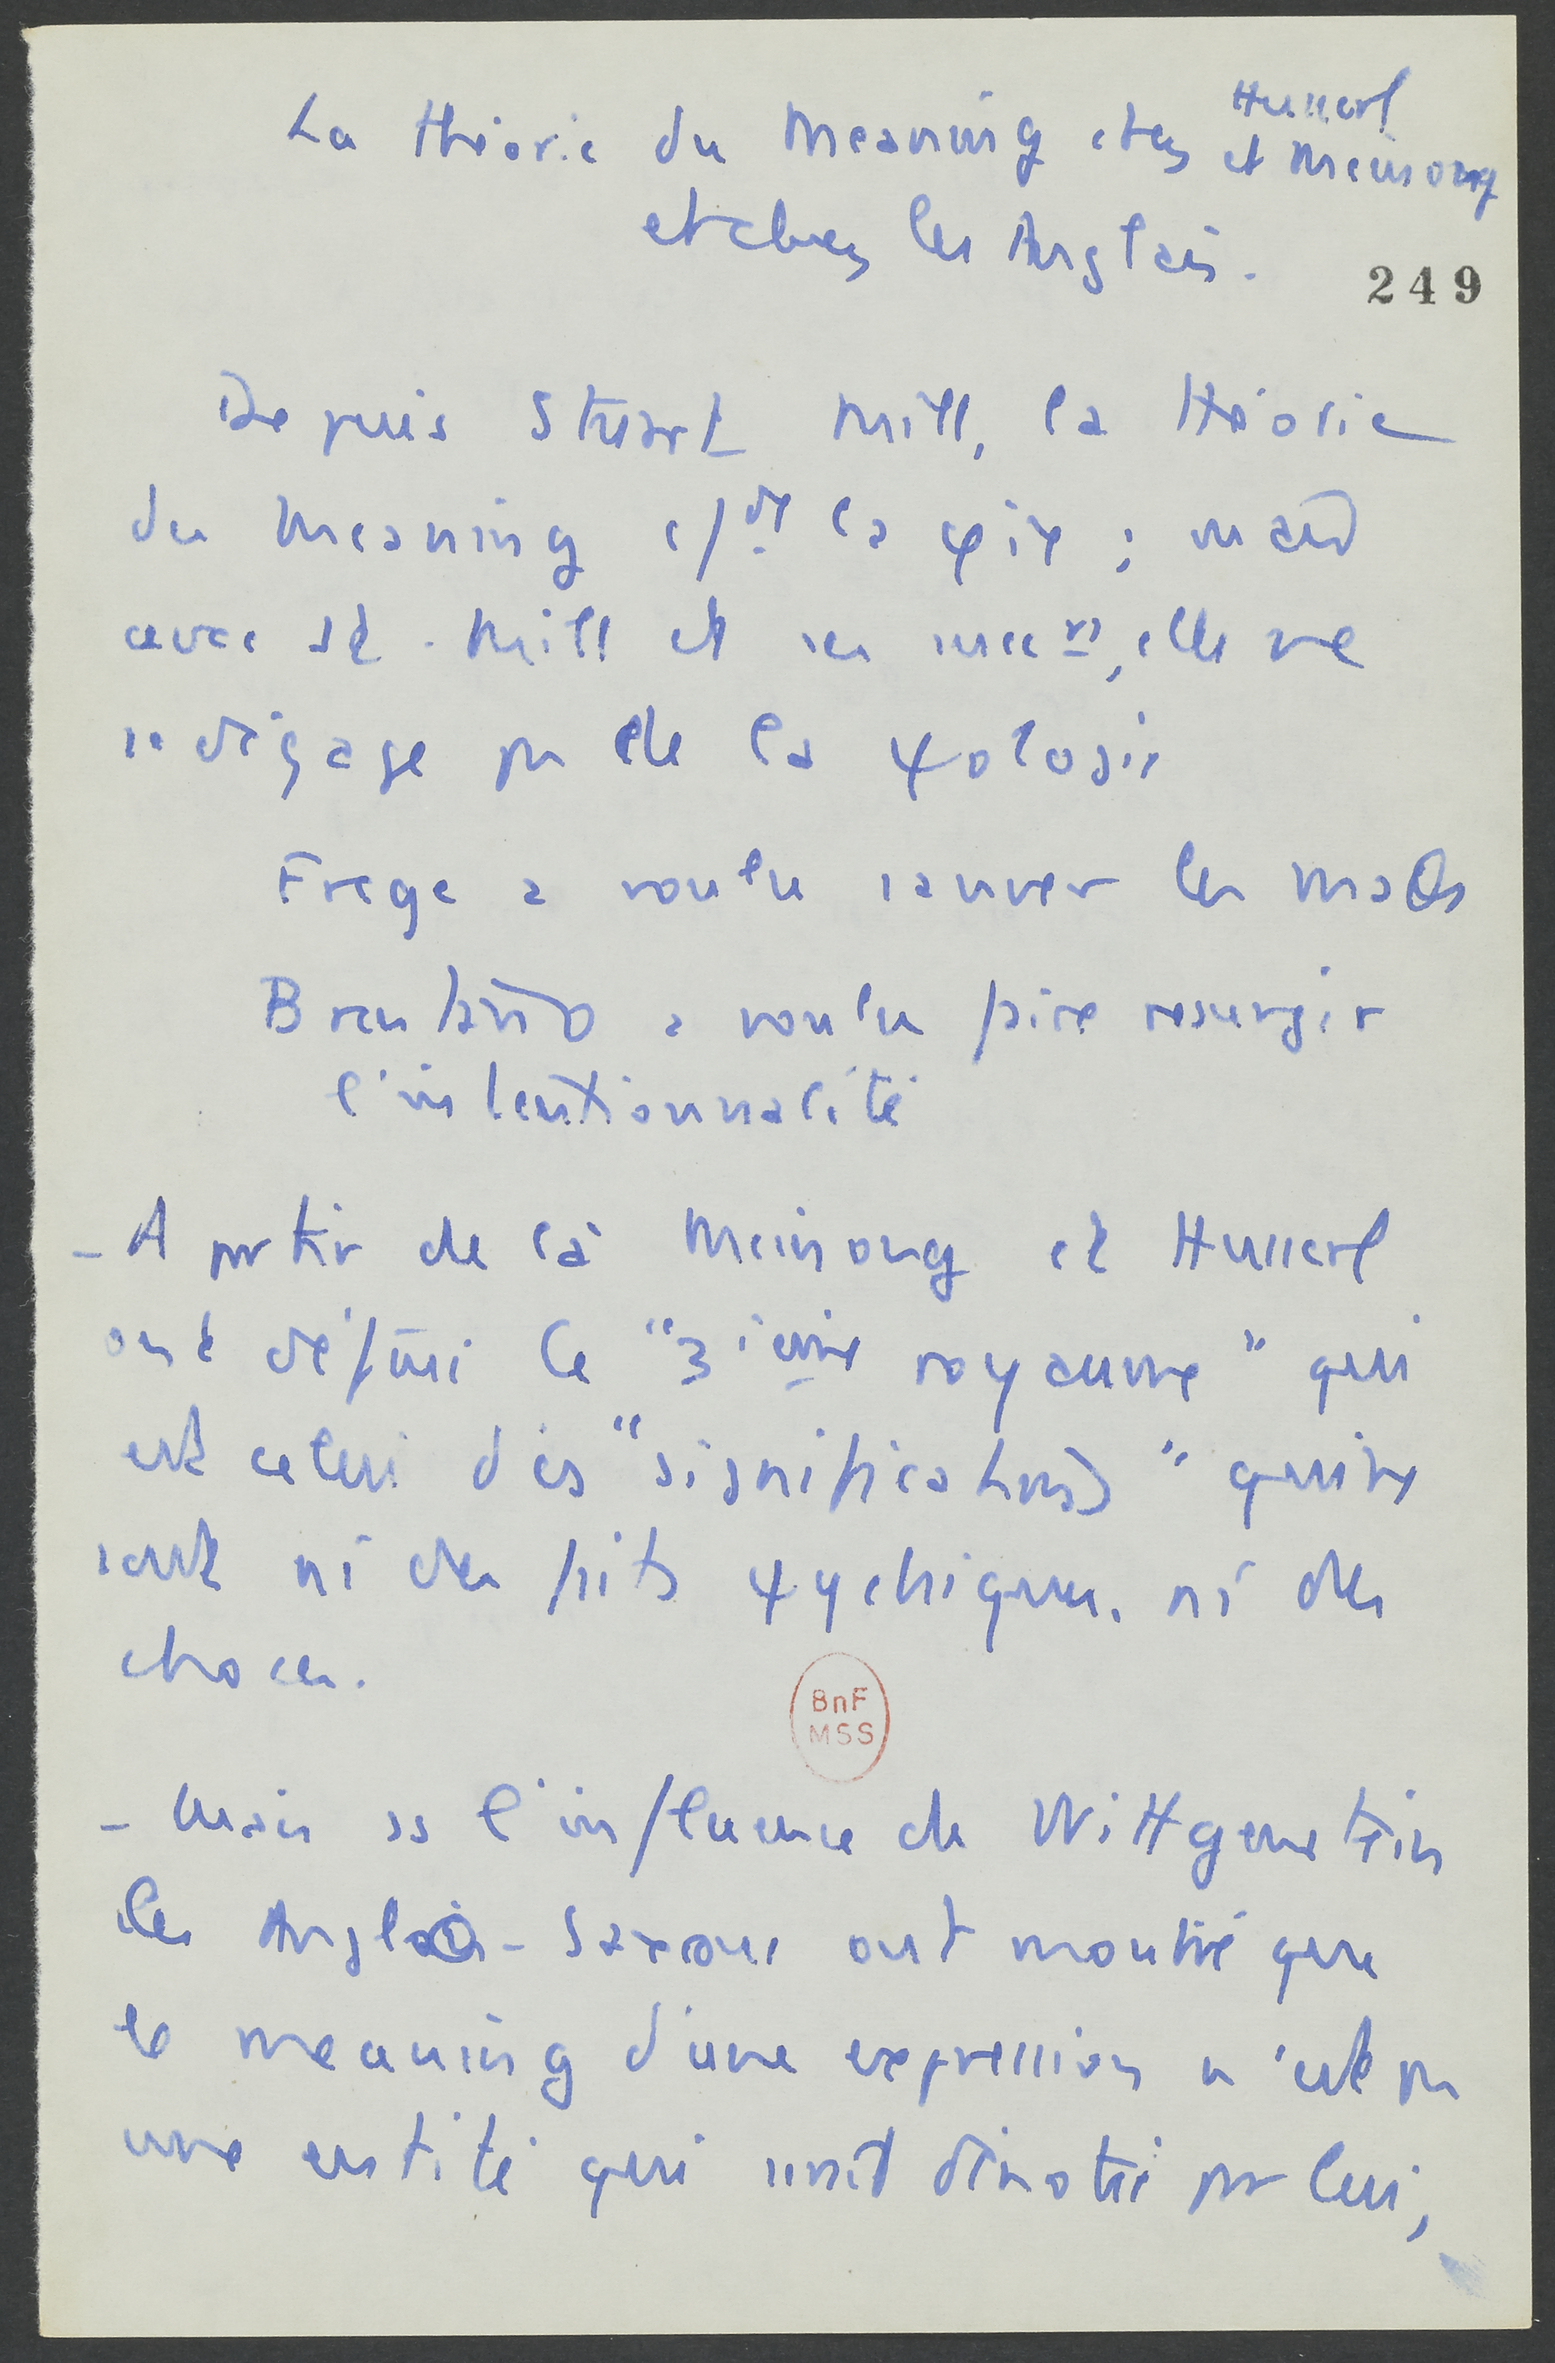 La théorie du Meaning chez Husserl
et Meinong
et chez les Anglais.
249
Depuis Stuart Mill, la théorie
du Meaning c/ la φie ; mais
avec St. Mill et ses succrs, elle ne
se dégage pas de la ψologie
Frege a voulu sauver les maths
Brentano a voulu faire resurgir
l'intentionnalité
- A partir de là Meinong et Husserl
ont défini le "3ième royaume" qui
est celui des "significations" qui ne
sont ni des faits ψychiques, ni des
choses.
BnF
MSS
- Mais ss l'influence de Wittgenstein
les Anglo-Saxons ont montré que
le meaning d'une expression n'est pas
une entité qui serait dénotée par lui,